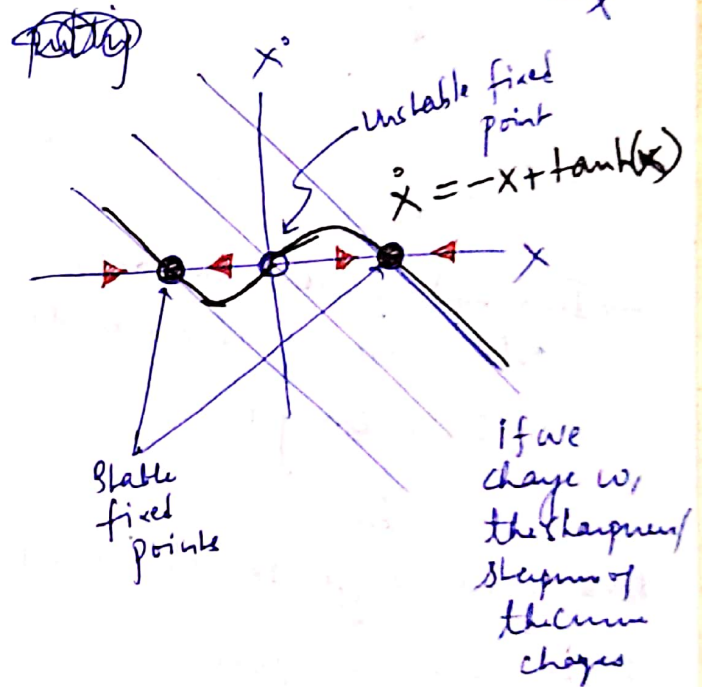 x
ẋ
Unstable fixed
point
ẋ = -x + tanh(x)
x
Stable
fixed
points
if we
change w,
the sharpness/
steepness of
the curve
changes